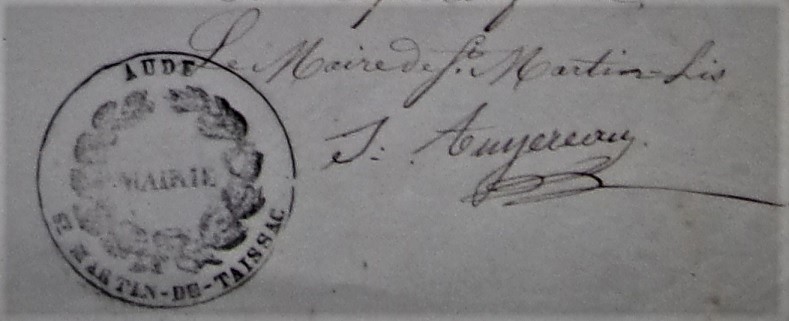 Le Maire de St. Martin-Lis
AUDE
MAIRIE
ST. MARTIN-DE-TAISSAC